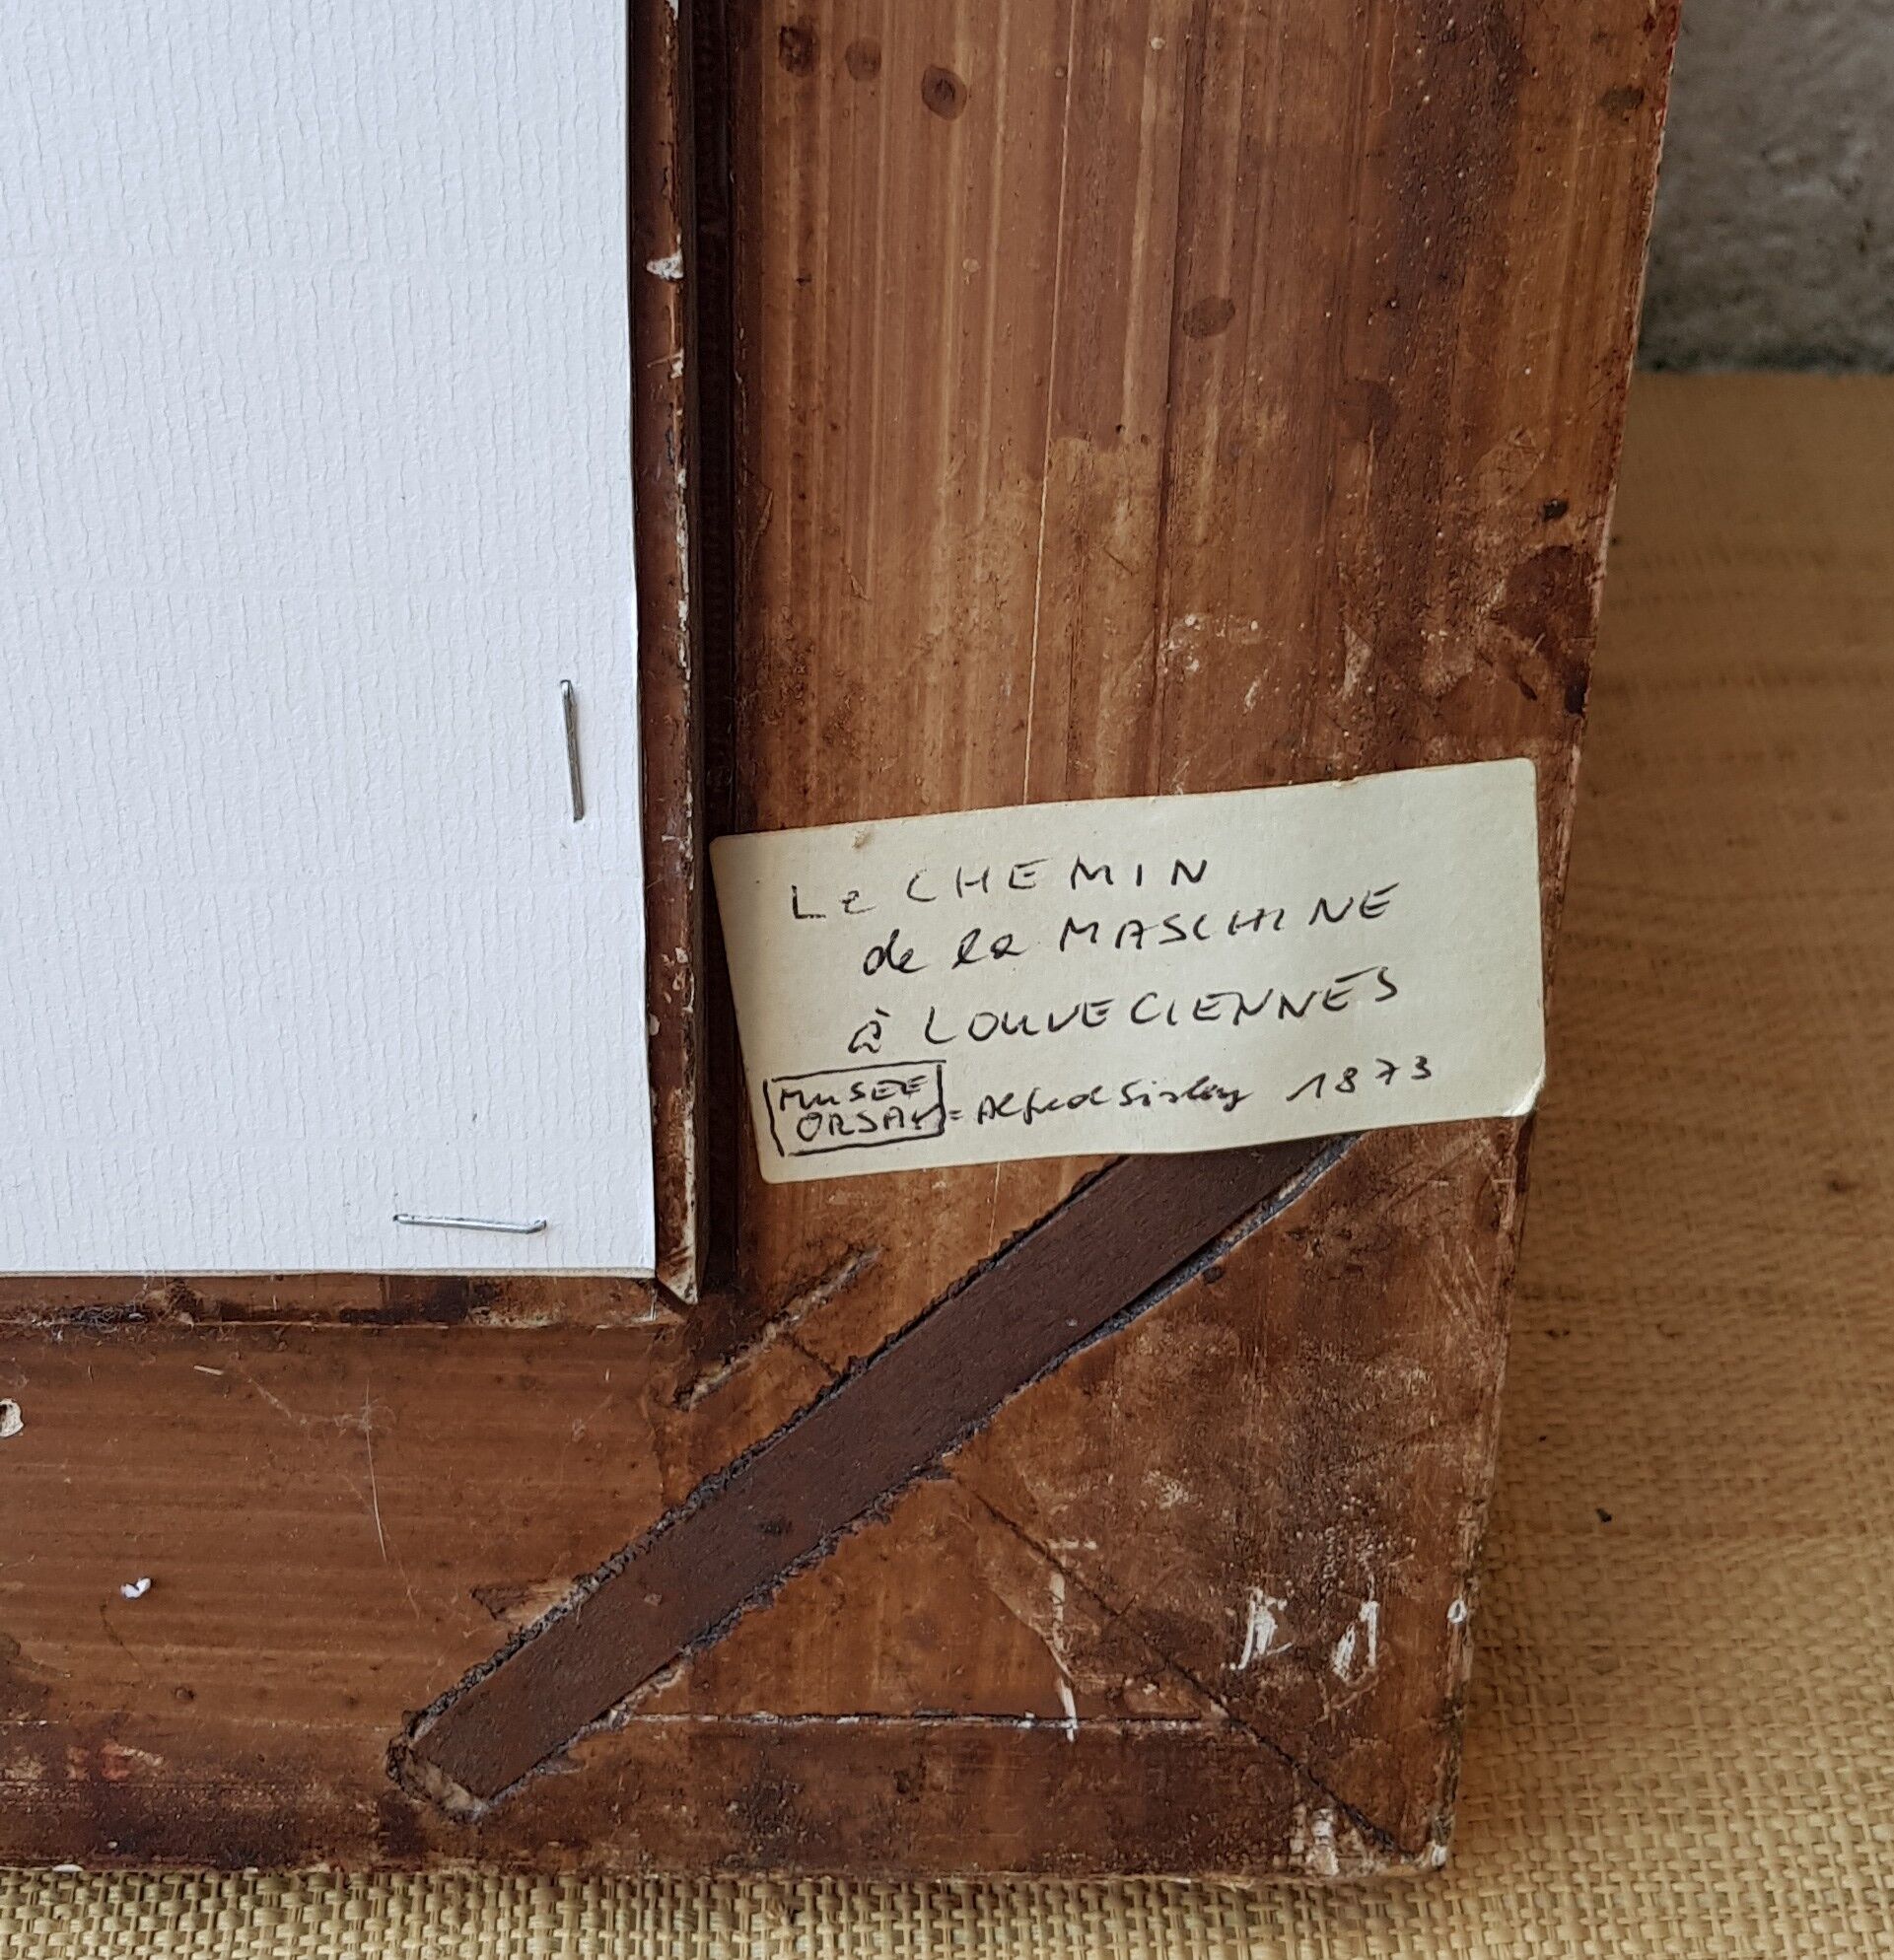 Le CHEMIN
de la MASCHINE
à LOUVECIENNES
MUSEE
ORSAY = Alfred Sisley 1873